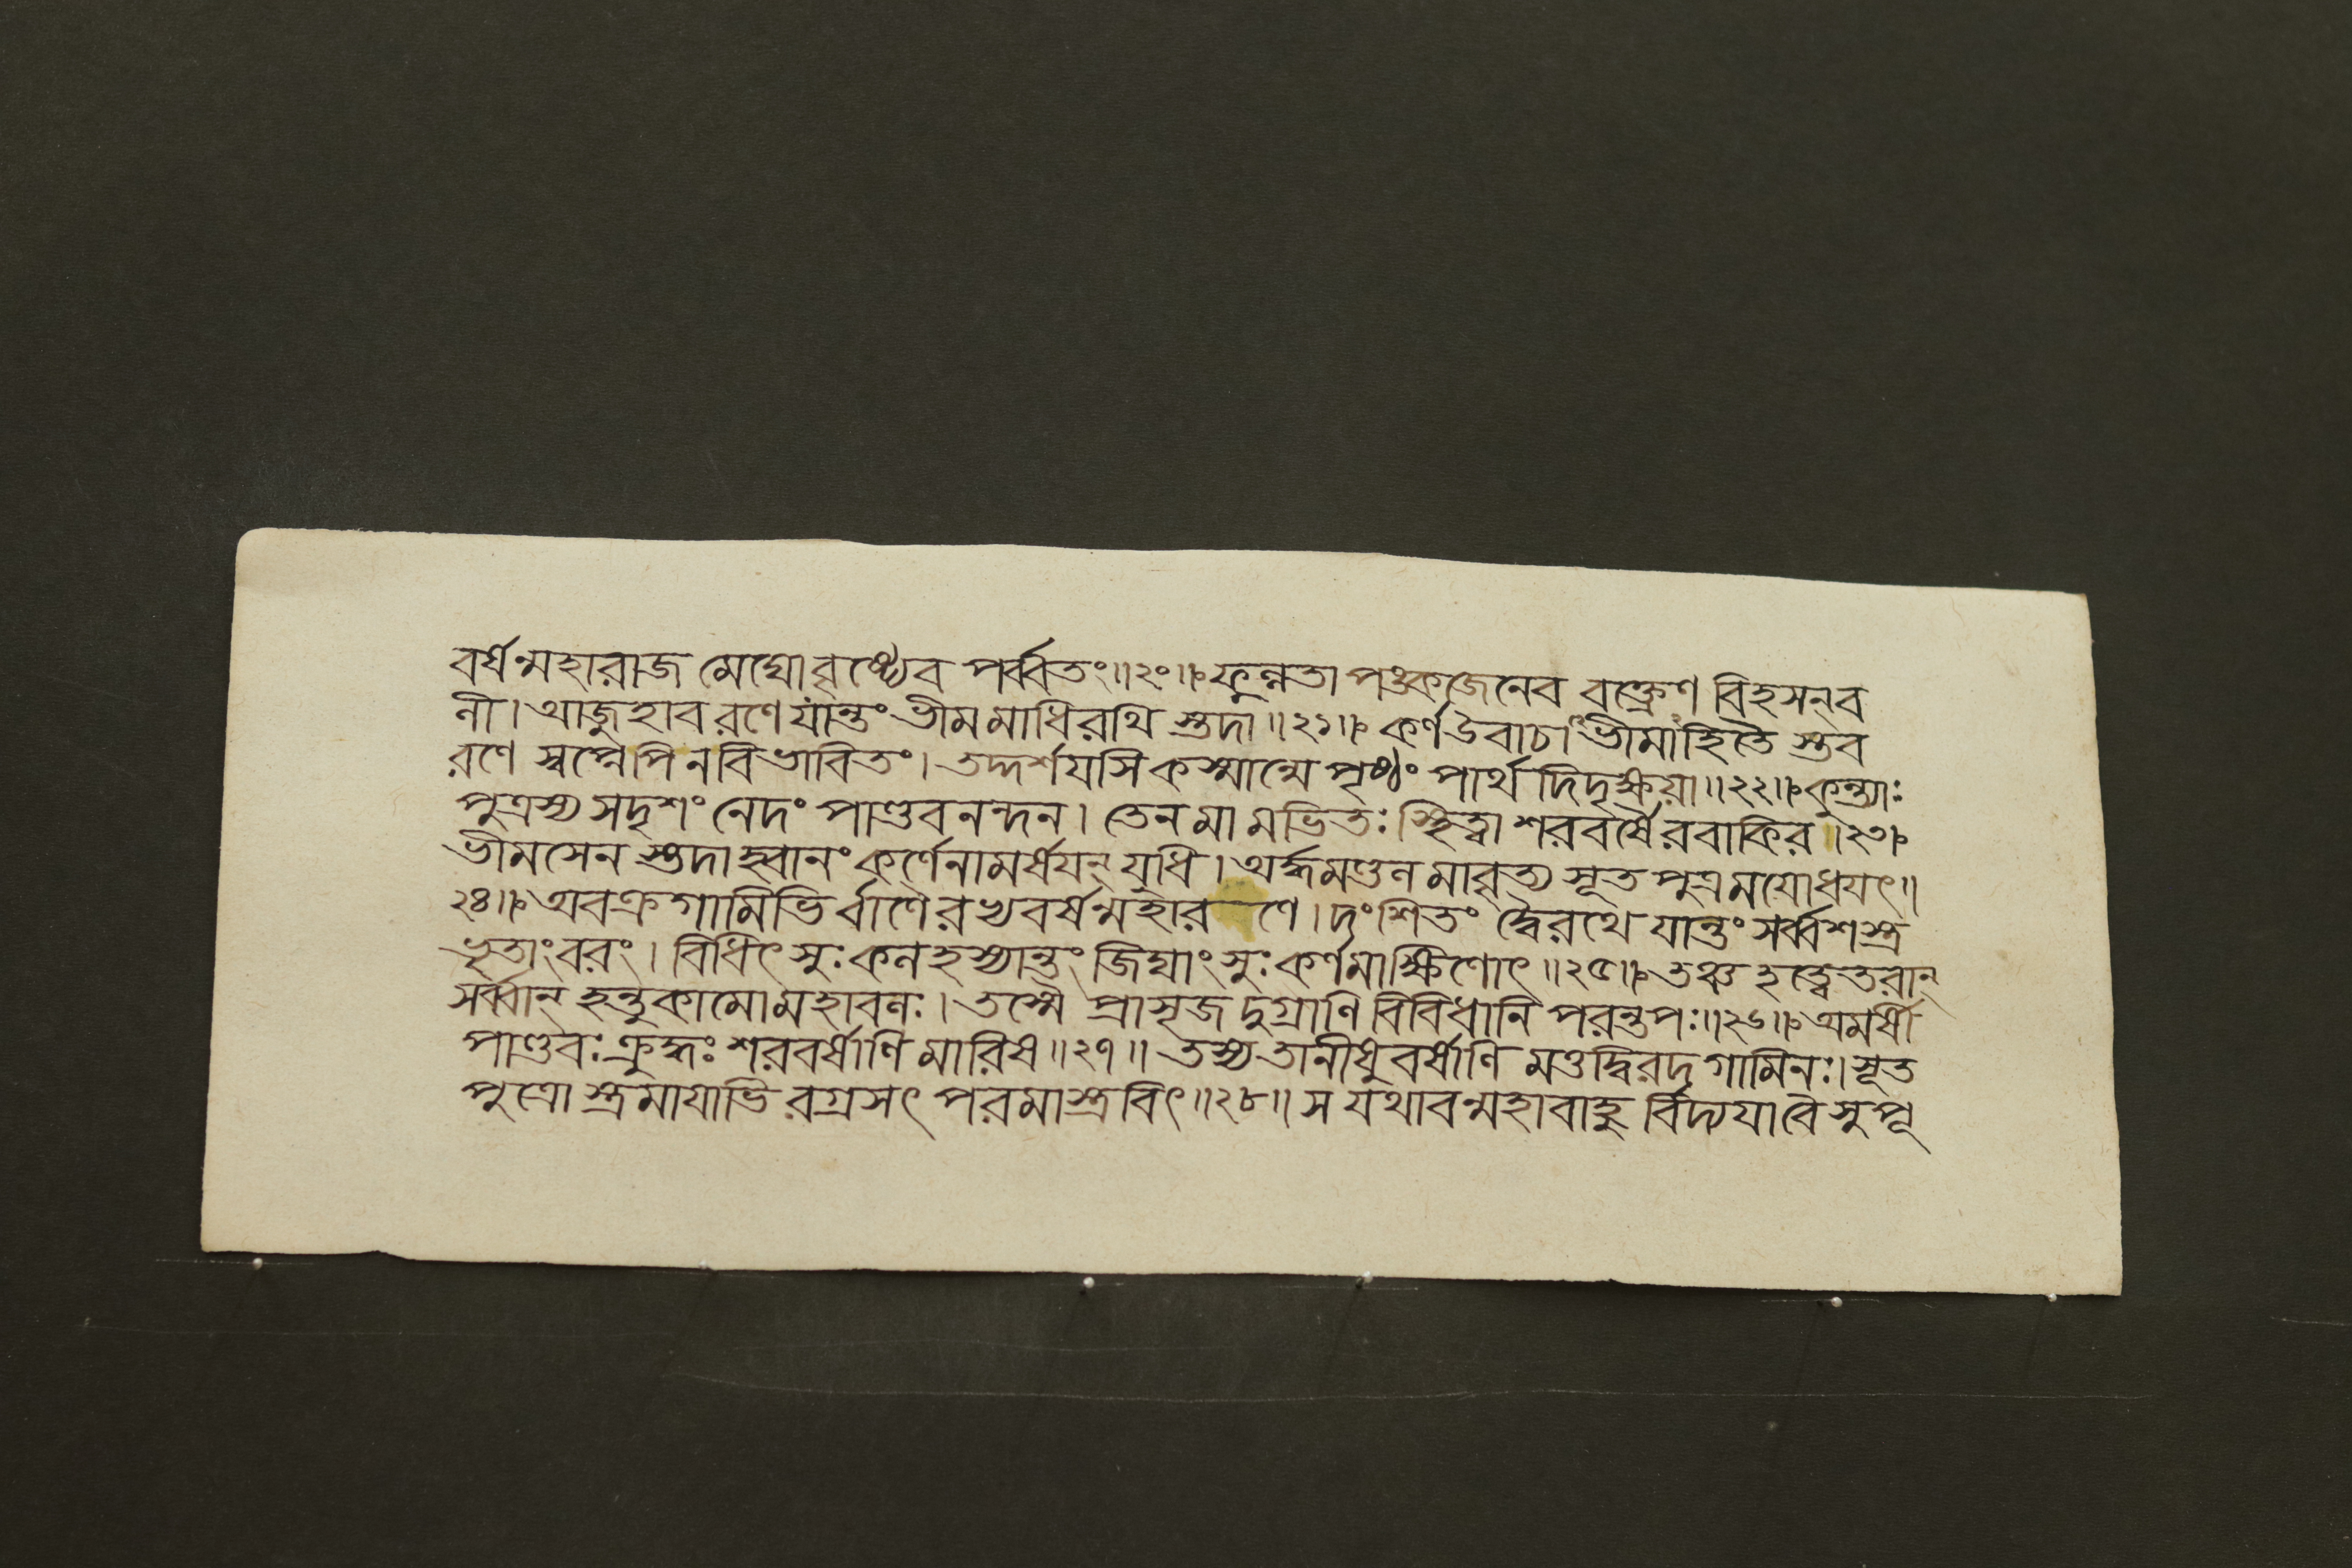 বর্ষন্মহারাজ মেঘোবৃষ্ট্যেব পর্ব্বতং॥২০॥ ফুল্লতা পঙ্কজেনেব বক্ত্রেণ বিহসন্ব
লী। আজুহাব রণে যান্তং ভীমমাধিরথি স্তদা॥২১॥ কর্ণ উবাচ। ভীমাহিতৈ স্তব
রণে স্বপ্নেপি ন বিভাবিতং। তদ্দর্শয়সি কস্মান্মে পৃষ্ঠং পার্থ দিদৃক্ষয়া॥২২॥ কুন্ত্যাঃ
পুত্রস্য সদৃশং নেদং পাণ্ডবনন্দন। তেন মামভিতঃ স্থিত্বা শরবর্ষৈরবাকির॥২৩॥
ভীমসেন স্তদাহ্বানং কর্ণেনামর্ষযন্ যুধি। অর্দ্ধমণ্ডলমাবৃত্য সূতপুত্রমযোধযৎ॥
২৪॥ অবক্রগামিভি র্বাণৈরভ্যবর্ষন্মহারণে। দংশিতং দ্বৈরথে যান্তং সর্ব্বশস্ত্র
ভৃতাংবরং। বিধিৎসুঃ কলহস্যান্তং জিঘাংসুঃ কর্ণমাক্ষিণোৎ॥২৫॥ তঞ্চ হত্বেতরান্
সর্ব্বান্ হন্তুকামো মহাবলঃ। তস্মৈ প্রাসৃজদুগ্রাণি বিবিধানি পরন্তপঃ॥২৬॥ অমর্ষী
পাণ্ডবঃ ক্রুদ্ধঃ শরবর্ষাণি মারিষ॥২৭॥ তস্য তানীষুবর্ষাণি মত্তদ্বিরদগামিনঃ। সূত
পুত্রো স্ত্রমাযাভি রগ্রসৎ পরমাস্ত্রবিৎ॥২৮॥ স যথাবন্মহাবাহু র্বিদ্যযাবৈ সুপূ